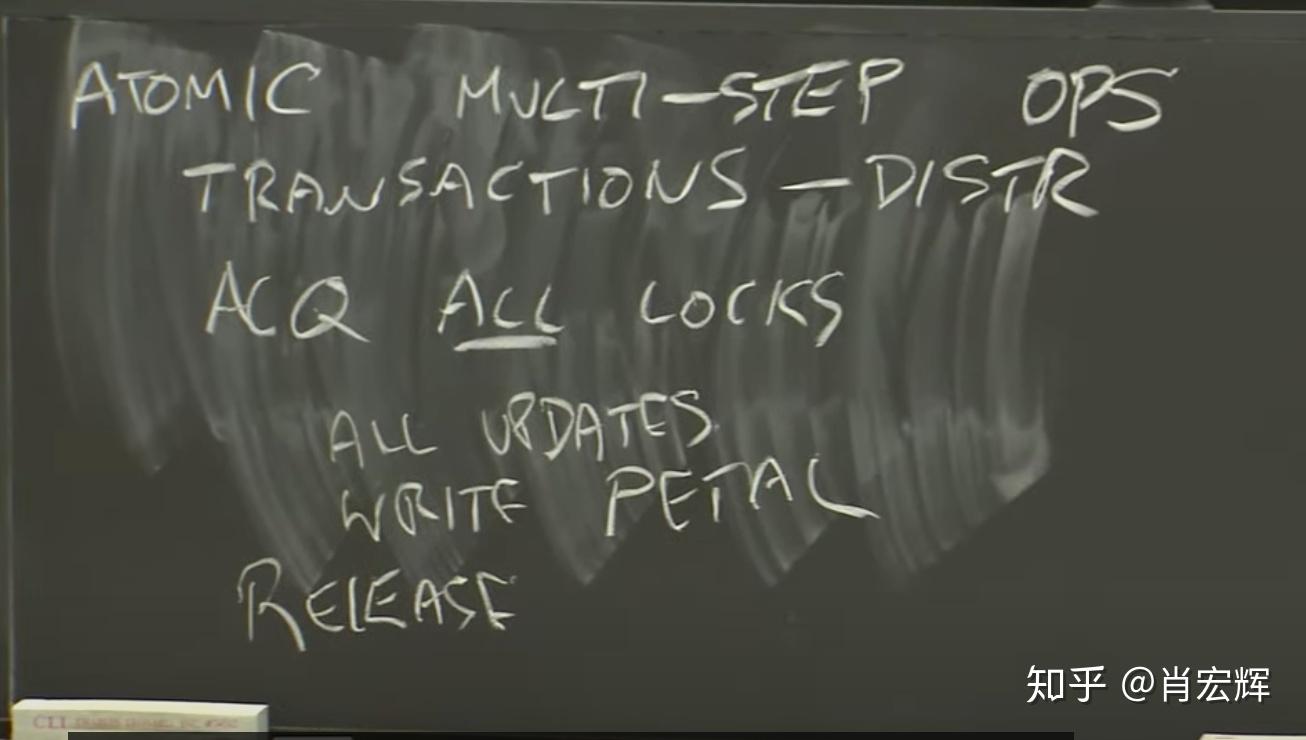 ATOMIC MULTI-STEP OPS
TRANSACTIONS - DISTR
ACQ ALL LOCKS
ALL UPDATES
WRITE PETAL
RELEASE
知乎 @肖宏辉